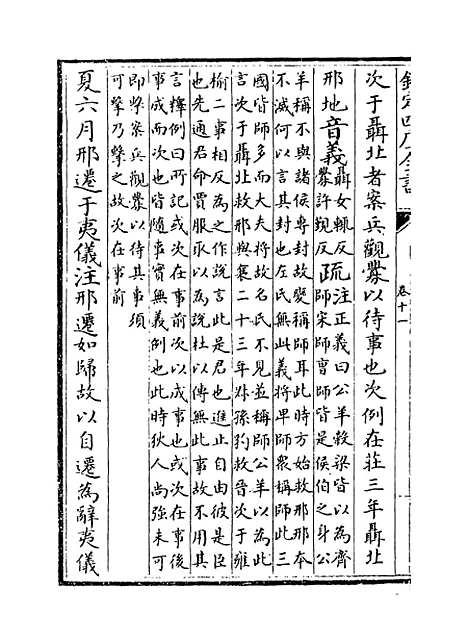 欽定四庫全書
卷十一
次于聶北者案兵觀釁以待事也次例在莊三年聶北
邢地音義聶女輒反釁許覲反疏注正義曰公羊穀梁皆以為齊
師宋師曹師皆是侯伯之身公
羊稱不與諸侯專封故變稱師耳此時方始救邢邢本
不滅何以言其封也左氏無此義將卑師衆稱師此三
國皆師多而大夫將故名氏不見並稱師公羊以為此
言次于聶北救邢與襄二十三年叔孫豹救晉次于雍
榆二事相反為之作說言此是君也進止自由彼是臣
也先通君命賈服取以為說杜以傳無此事故不用其
言釋例曰所記或次在事前次以成事也或次在事後
事成而次也皆隨事實無義例也此時狄人尚強未可
即擊案兵觀釁以待其事須
可擊乃擊之故次在事前
夏六月邢遷于夷儀注邢遷如歸故以自遷為辭夷儀